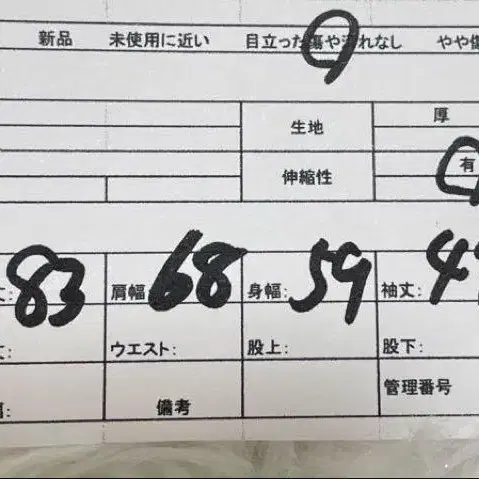 新品 未使用に近い 目立った傷や汚れなし やや傷
生地 厚
伸縮性 有
丈: 83 肩幅 68 身幅: 59 袖丈: 4
丈: ウエスト: 股上: 股下:
備考 管理番号